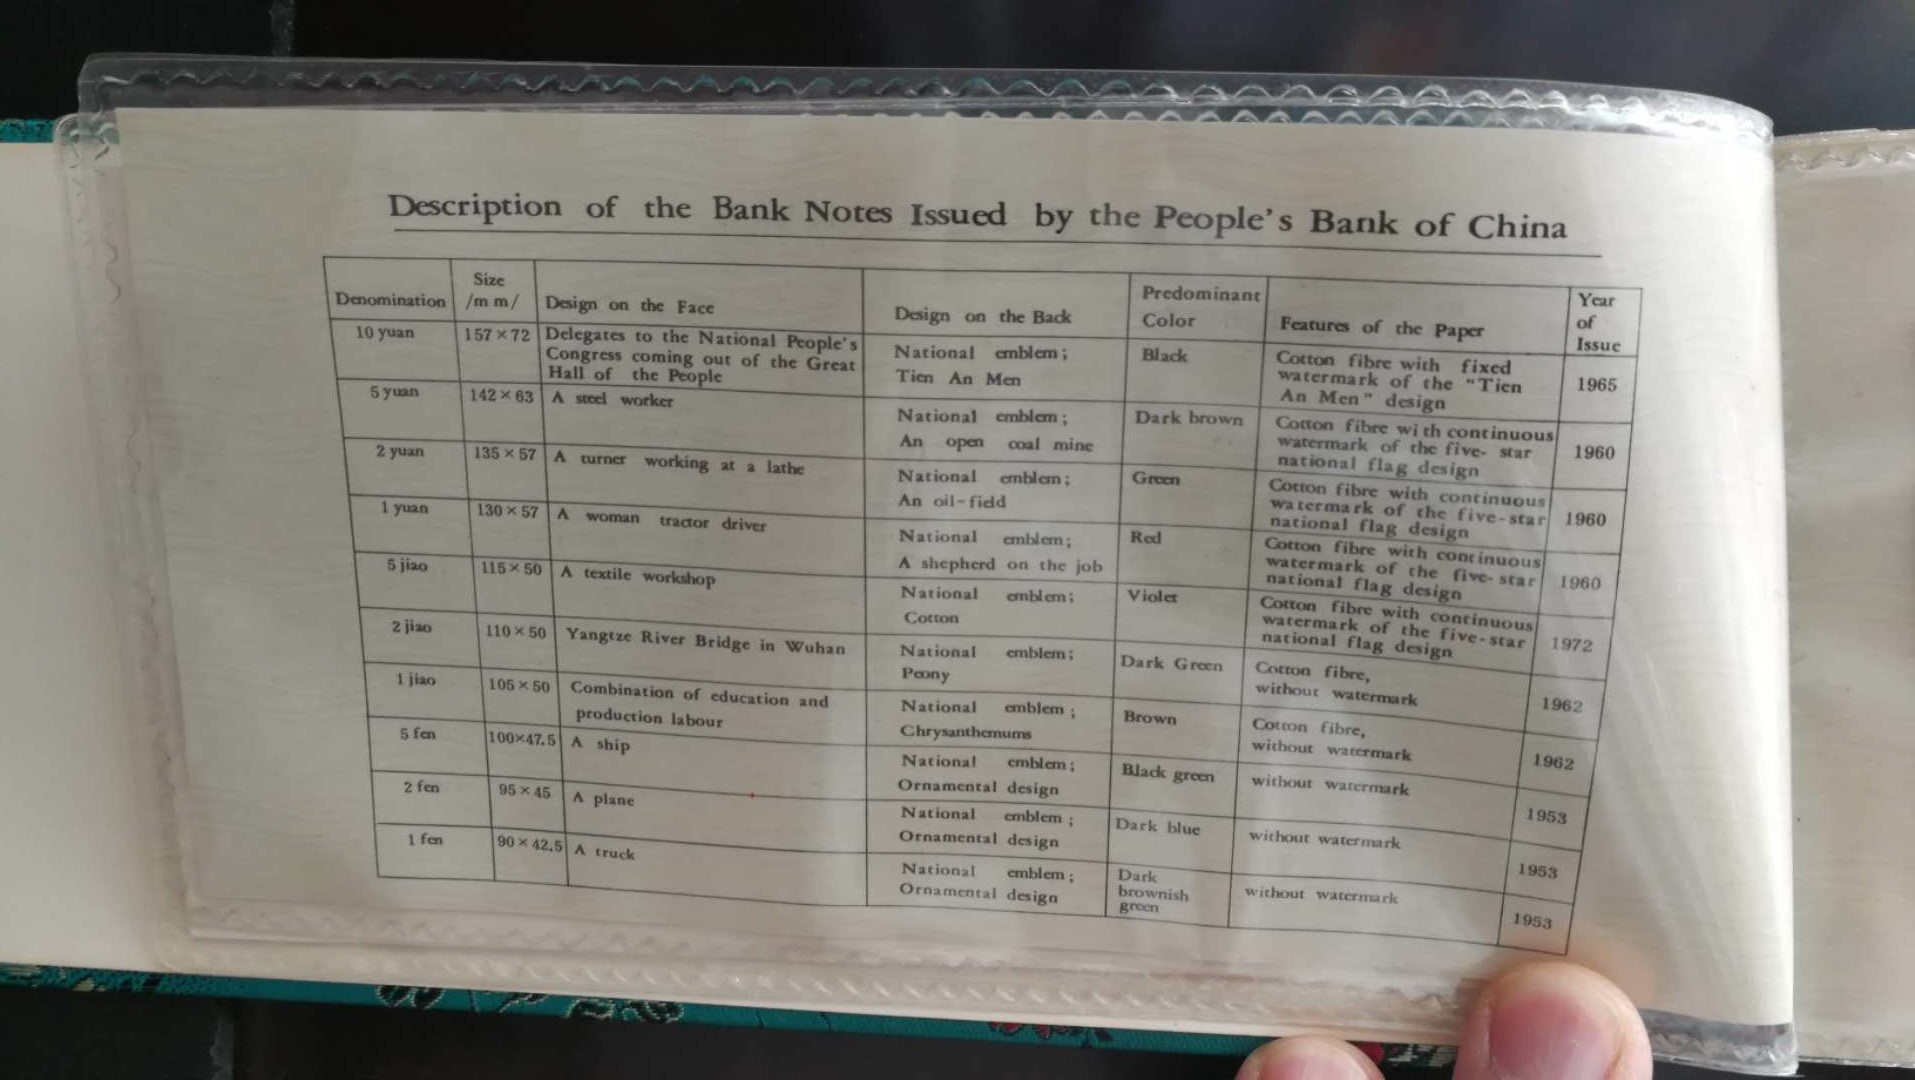 Description of the Bank Notes Issued by the People's Bank of China
Denomination
Size
/m m/
Design on the Face
Design on the Back
Predominant
Color
Features of the Paper
Year
of
Issue
10 yuan
157 × 72
Delegates to the National People's
Congress coming out of the Great
Hall of the People
National emblem;
Tien An Men
Black
Cotton fibre with fixed
watermark of the "Tien
An Men" design
1965
5 yuan
142 × 63
A steel worker
National emblem;
An open coal mine
Dark brown
Cotton fibre with continuous
watermark of the five- star
national flag design
1960
2 yuan
135 × 57
A turner working at a lathe
National emblem;
An oil-field
Green
Cotton fibre with continuous
watermark of the five-star
national flag design
1960
1 yuan
130 × 57
A woman tractor driver
National emblem;
A shepherd on the job
Red
Cotton fibre with continuous
watermark of the five-star
national flag design
1960
5 jiao
115 × 50
A textile workshop
National emblem;
Cotton
Violet
Cotton fibre with continuous
watermark of the five-star
national flag design
1972
2 jiao
110 × 50
Yangtze River Bridge in Wuhan
National emblem;
Peony
Dark Green
Cotton fibre,
without watermark
1962
1 jiao
105 × 50
Combination of education and
production labour
National emblem;
Chrysanthemums
Brown
Cotton fibre,
without watermark
1962
5 fen
100×47.5
A ship
National emblem;
Ornamental design
Black green
without watermark
1953
2 fen
95 × 45
A plane
National emblem;
Ornamental design
Dark blue
without watermark
1953
1 fen
90 × 42.5
A truck
National emblem;
Ornamental design
Dark
brownish
green
without watermark
1953